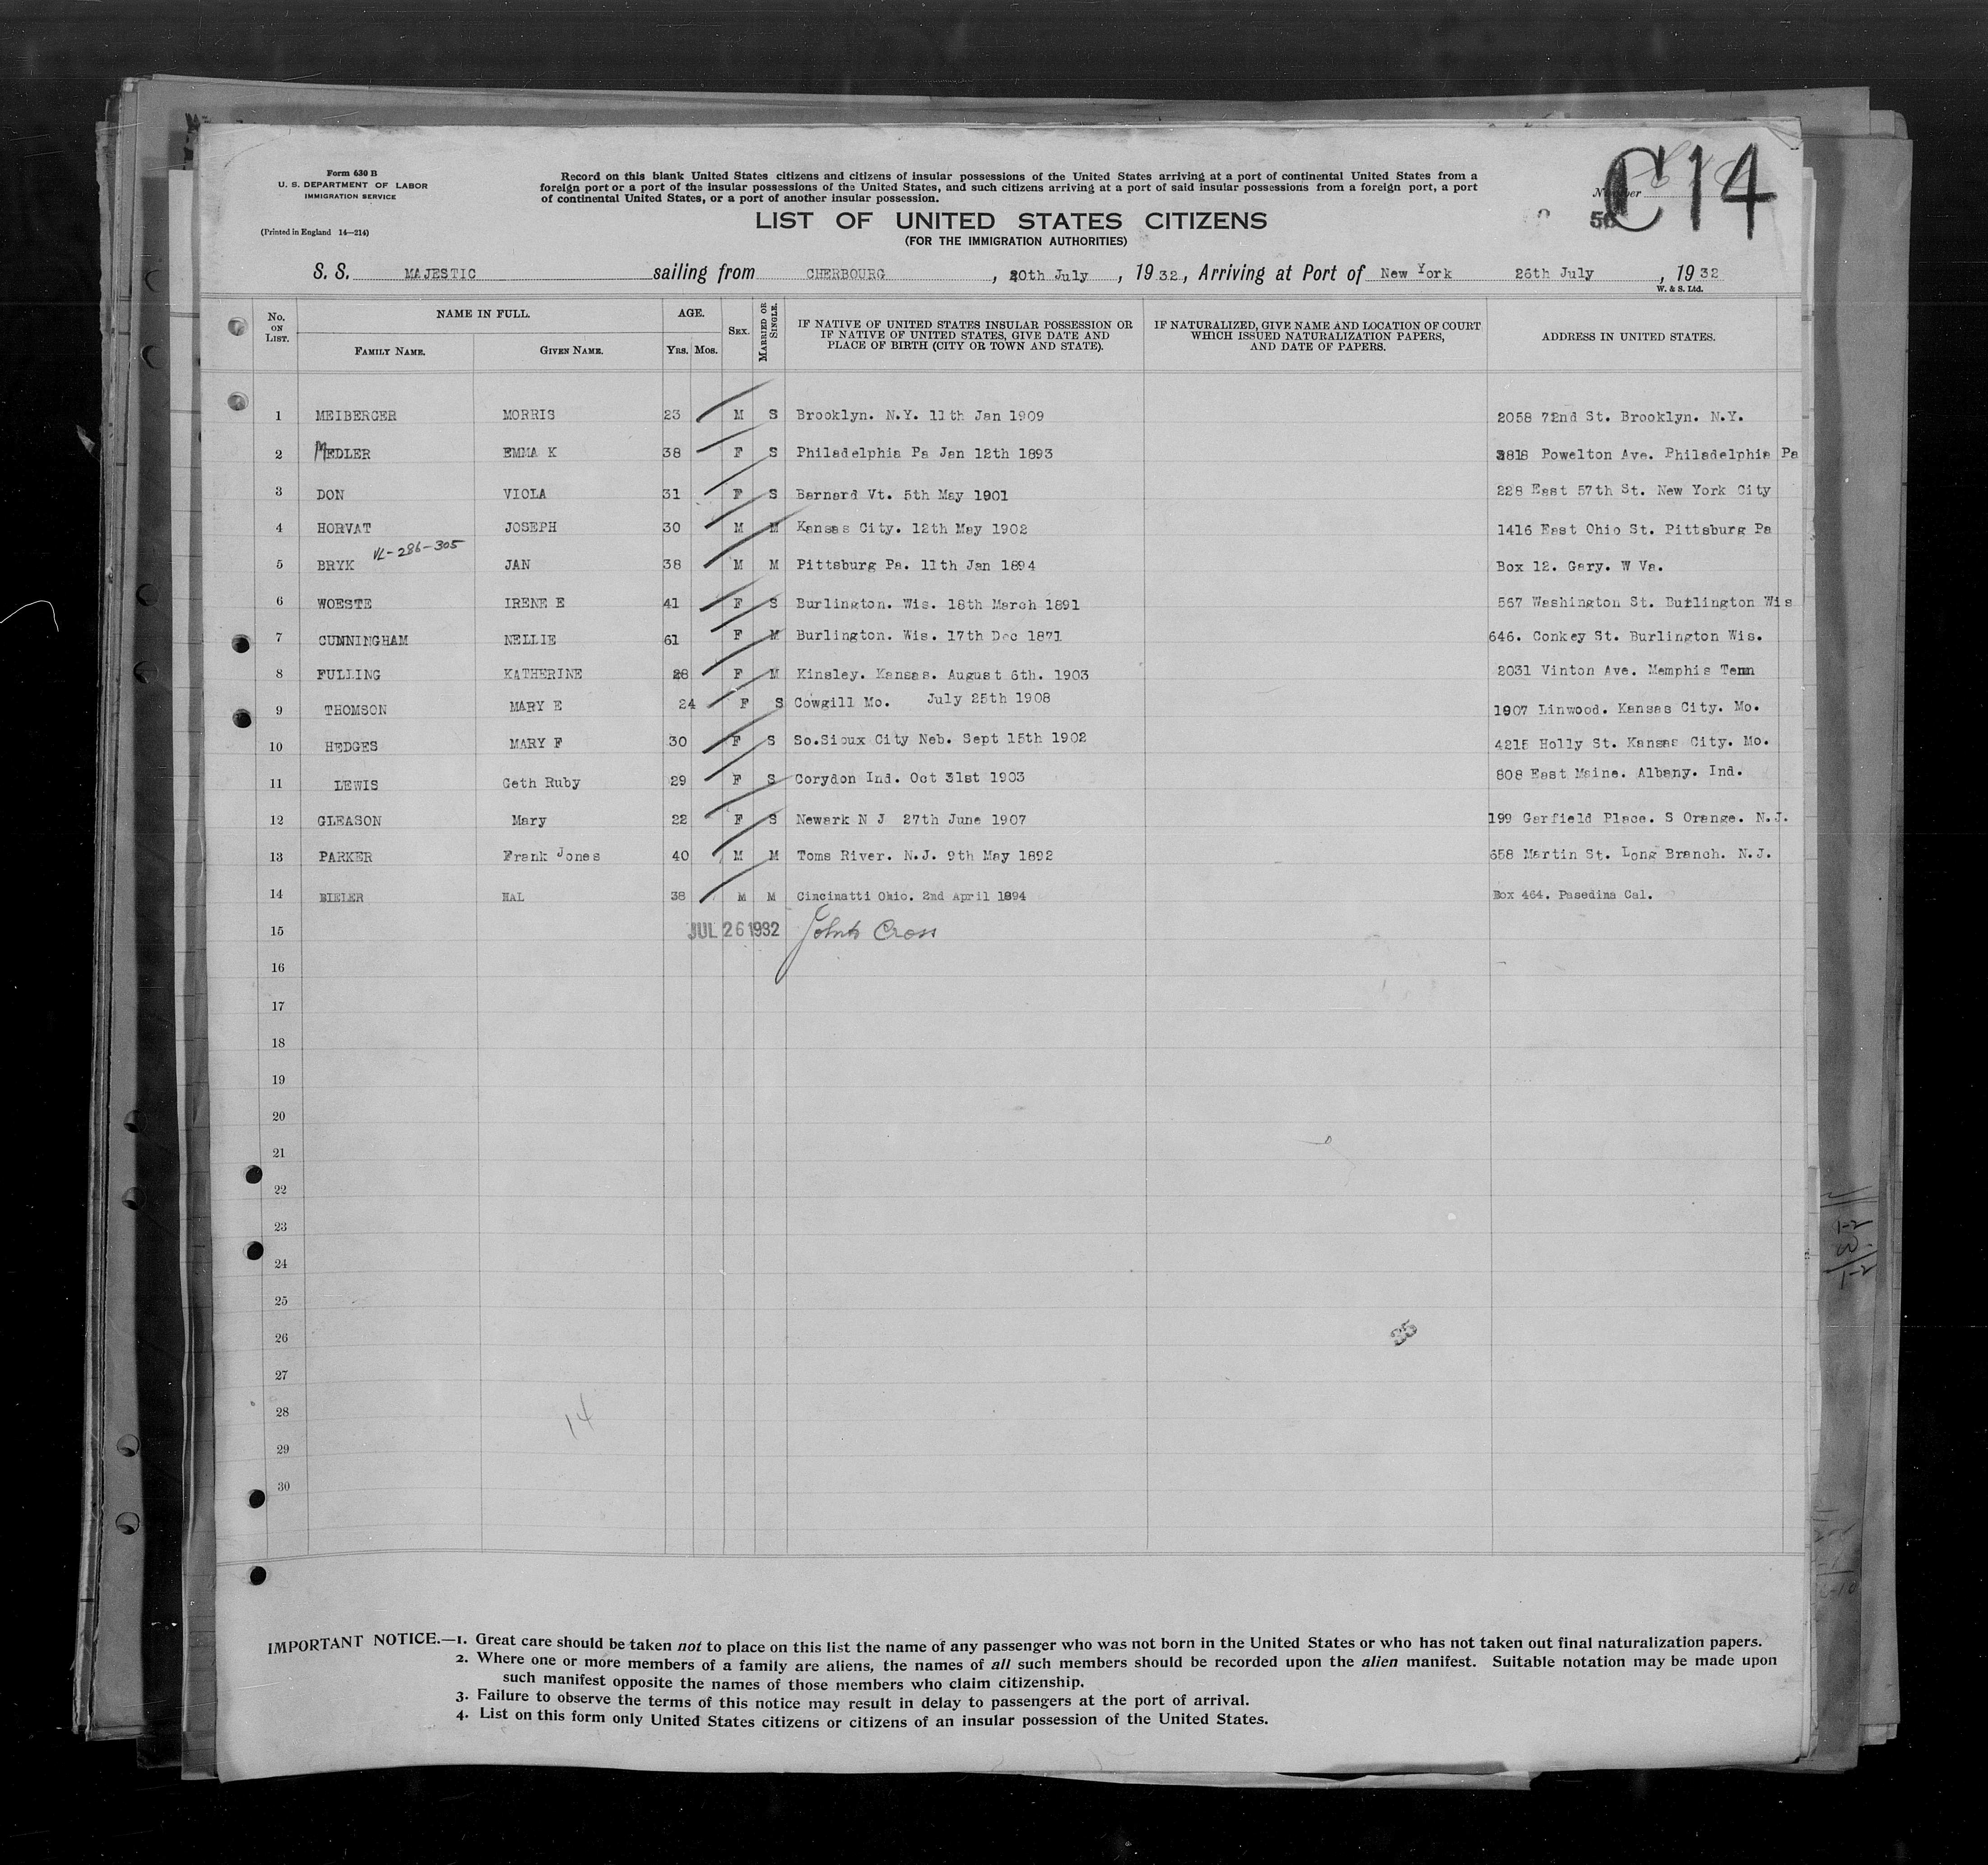 Form 630 B
U. S. DEPARTMENT OF LABOR
IMMIGRATION SERVICE
(Printed in England 14—214)
Record on this blank United States citizens and citizens of insular possessions of the United States arriving at a port of continental United States from a
foreign port or a port of the insular possessions of the United States, and such citizens arriving at a port of said insular possessions from a foreign port, a port
of continental United States, or a port of another insular possession.
LIST OF UNITED STATES CITIZENS
(FOR THE IMMIGRATION AUTHORITIES)
Number
56
C14
S. S. MAJESTIC sailing from CHERBOURG, 20th July, 1932, Arriving at Port of New York 26th July, 1932
W. & S. Ltd.
No. ON LIST. NAME IN FULL. AGE. SEX. MARRIED OR SINGLE. IF NATIVE OF UNITED STATES INSULAR POSSESSION OR IF NATIVE OF UNITED STATES, GIVE DATE AND PLACE OF BIRTH (CITY OR TOWN AND STATE). IF NATURALIZED, GIVE NAME AND LOCATION OF COURT WHICH ISSUED NATURALIZATION PAPERS, AND DATE OF PAPERS. ADDRESS IN UNITED STATES.
FAMILY NAME. GIVEN NAME. YRS. MOS.
1 MEIBERGER MORRIS 23 M S Brooklyn. N.Y. 11th Jan 1909 2058 72nd St. Brooklyn. N.Y.
2 MEDLER EMMA K 38 F S Philadelphia Pa Jan 12th 1893 3818 Powelton Ave. Philadelphia Pa
3 DON VIOLA 31 F S Barnard Vt. 5th May 1901 228 East 57th St. New York City
4 HORVAT JOSEPH 30 M M Kansas City. 12th May 1902 1416 East Ohio St. Pittsburg Pa
VL-286-305
5 BRYK JAN 38 M M Pittsburg Pa. 11th Jan 1894 Box 12. Gary. W Va.
6 WOESTE IRENE E 41 F S Burlington. Wis. 18th March 1891 567 Washington St. Burlington Wis
7 CUNNINGHAM NELLIE 61 F M Burlington. Wis. 17th Dec 1871 646. Conkey St. Burlington Wis.
8 FULLING KATHERINE 28 F M Kinsley. Kansas. August 6th. 1903 2031 Vinton Ave. Memphis Tenn
9 THOMSON MARY E 24 F S Cowgill Mo. July 25th 1908 1907 Linwood. Kansas City. Mo.
10 HEDGES MARY F 30 F S So.Sioux City Neb. Sept 15th 1902 4215 Holly St. Kansas City. Mo.
11 LEWIS Geth Ruby 29 F S Corydon Ind. Oct 31st 1903 808 East Maine. Albany. Ind.
12 GLEASON Mary 22 F S Newark N J 27th June 1907 199 Garfield Place. S Orange. N.J.
13 PARKER Frank Jones 40 M M Toms River. N.J. 9th May 1892 658 Martin St. Long Branch. N.J.
14 BIELER HAL 38 M M Cincinatti Ohio. 2nd April 1894 Box 464. Pasedina Cal.
15 JUL 26 1932 John Cross
16
17
18
19
20
21
22
23
24
25
26
35
27
28
14
29
30
IMPORTANT NOTICE.—1. Great care should be taken not to place on this list the name of any passenger who was not born in the United States or who has not taken out final naturalization papers.
2. Where one or more members of a family are aliens, the names of all such members should be recorded upon the alien manifest. Suitable notation may be made upon
such manifest opposite the names of those members who claim citizenship.
3. Failure to observe the terms of this notice may result in delay to passengers at the port of arrival.
4. List on this form only United States citizens or citizens of an insular possession of the United States.